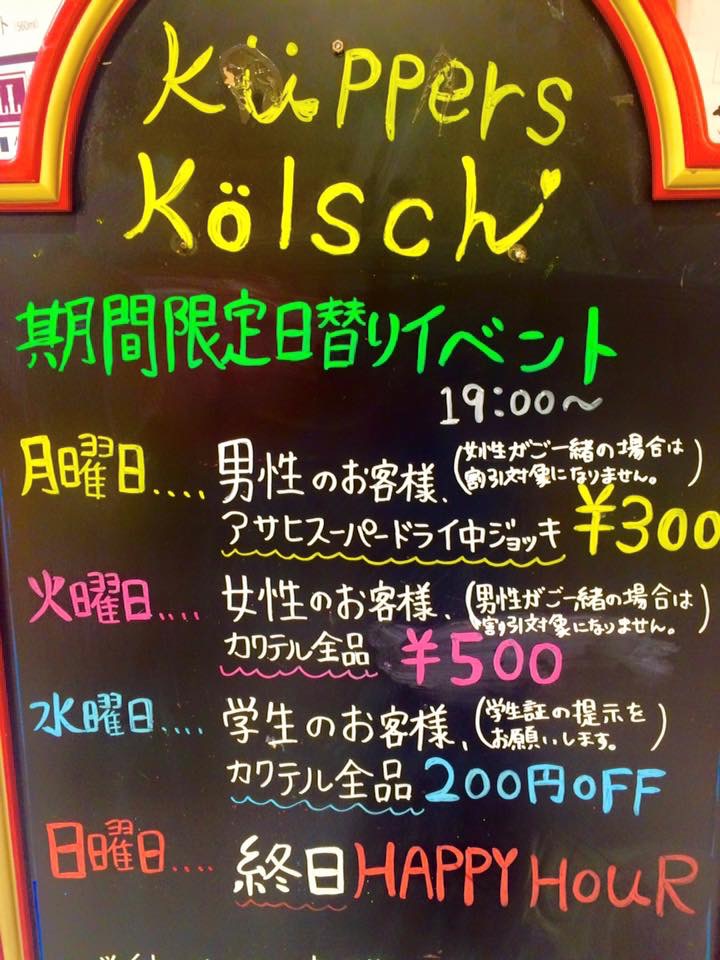 Küppers
Kölsch
期間限定日替りイベント
19:00～
月曜日....男性のお客様、(女性がご一緒の場合は
割引対象になりません。)
アサヒスーパードライ中ジョッキ ¥300
火曜日....女性のお客様、(男性がご一緒の場合は
割引対象になりません。)
カクテル全品 ¥500
水曜日....学生のお客様、(学生証の提示を
お願いします。)
カクテル全品 200円OFF
日曜日....終日HAPPY HOUR